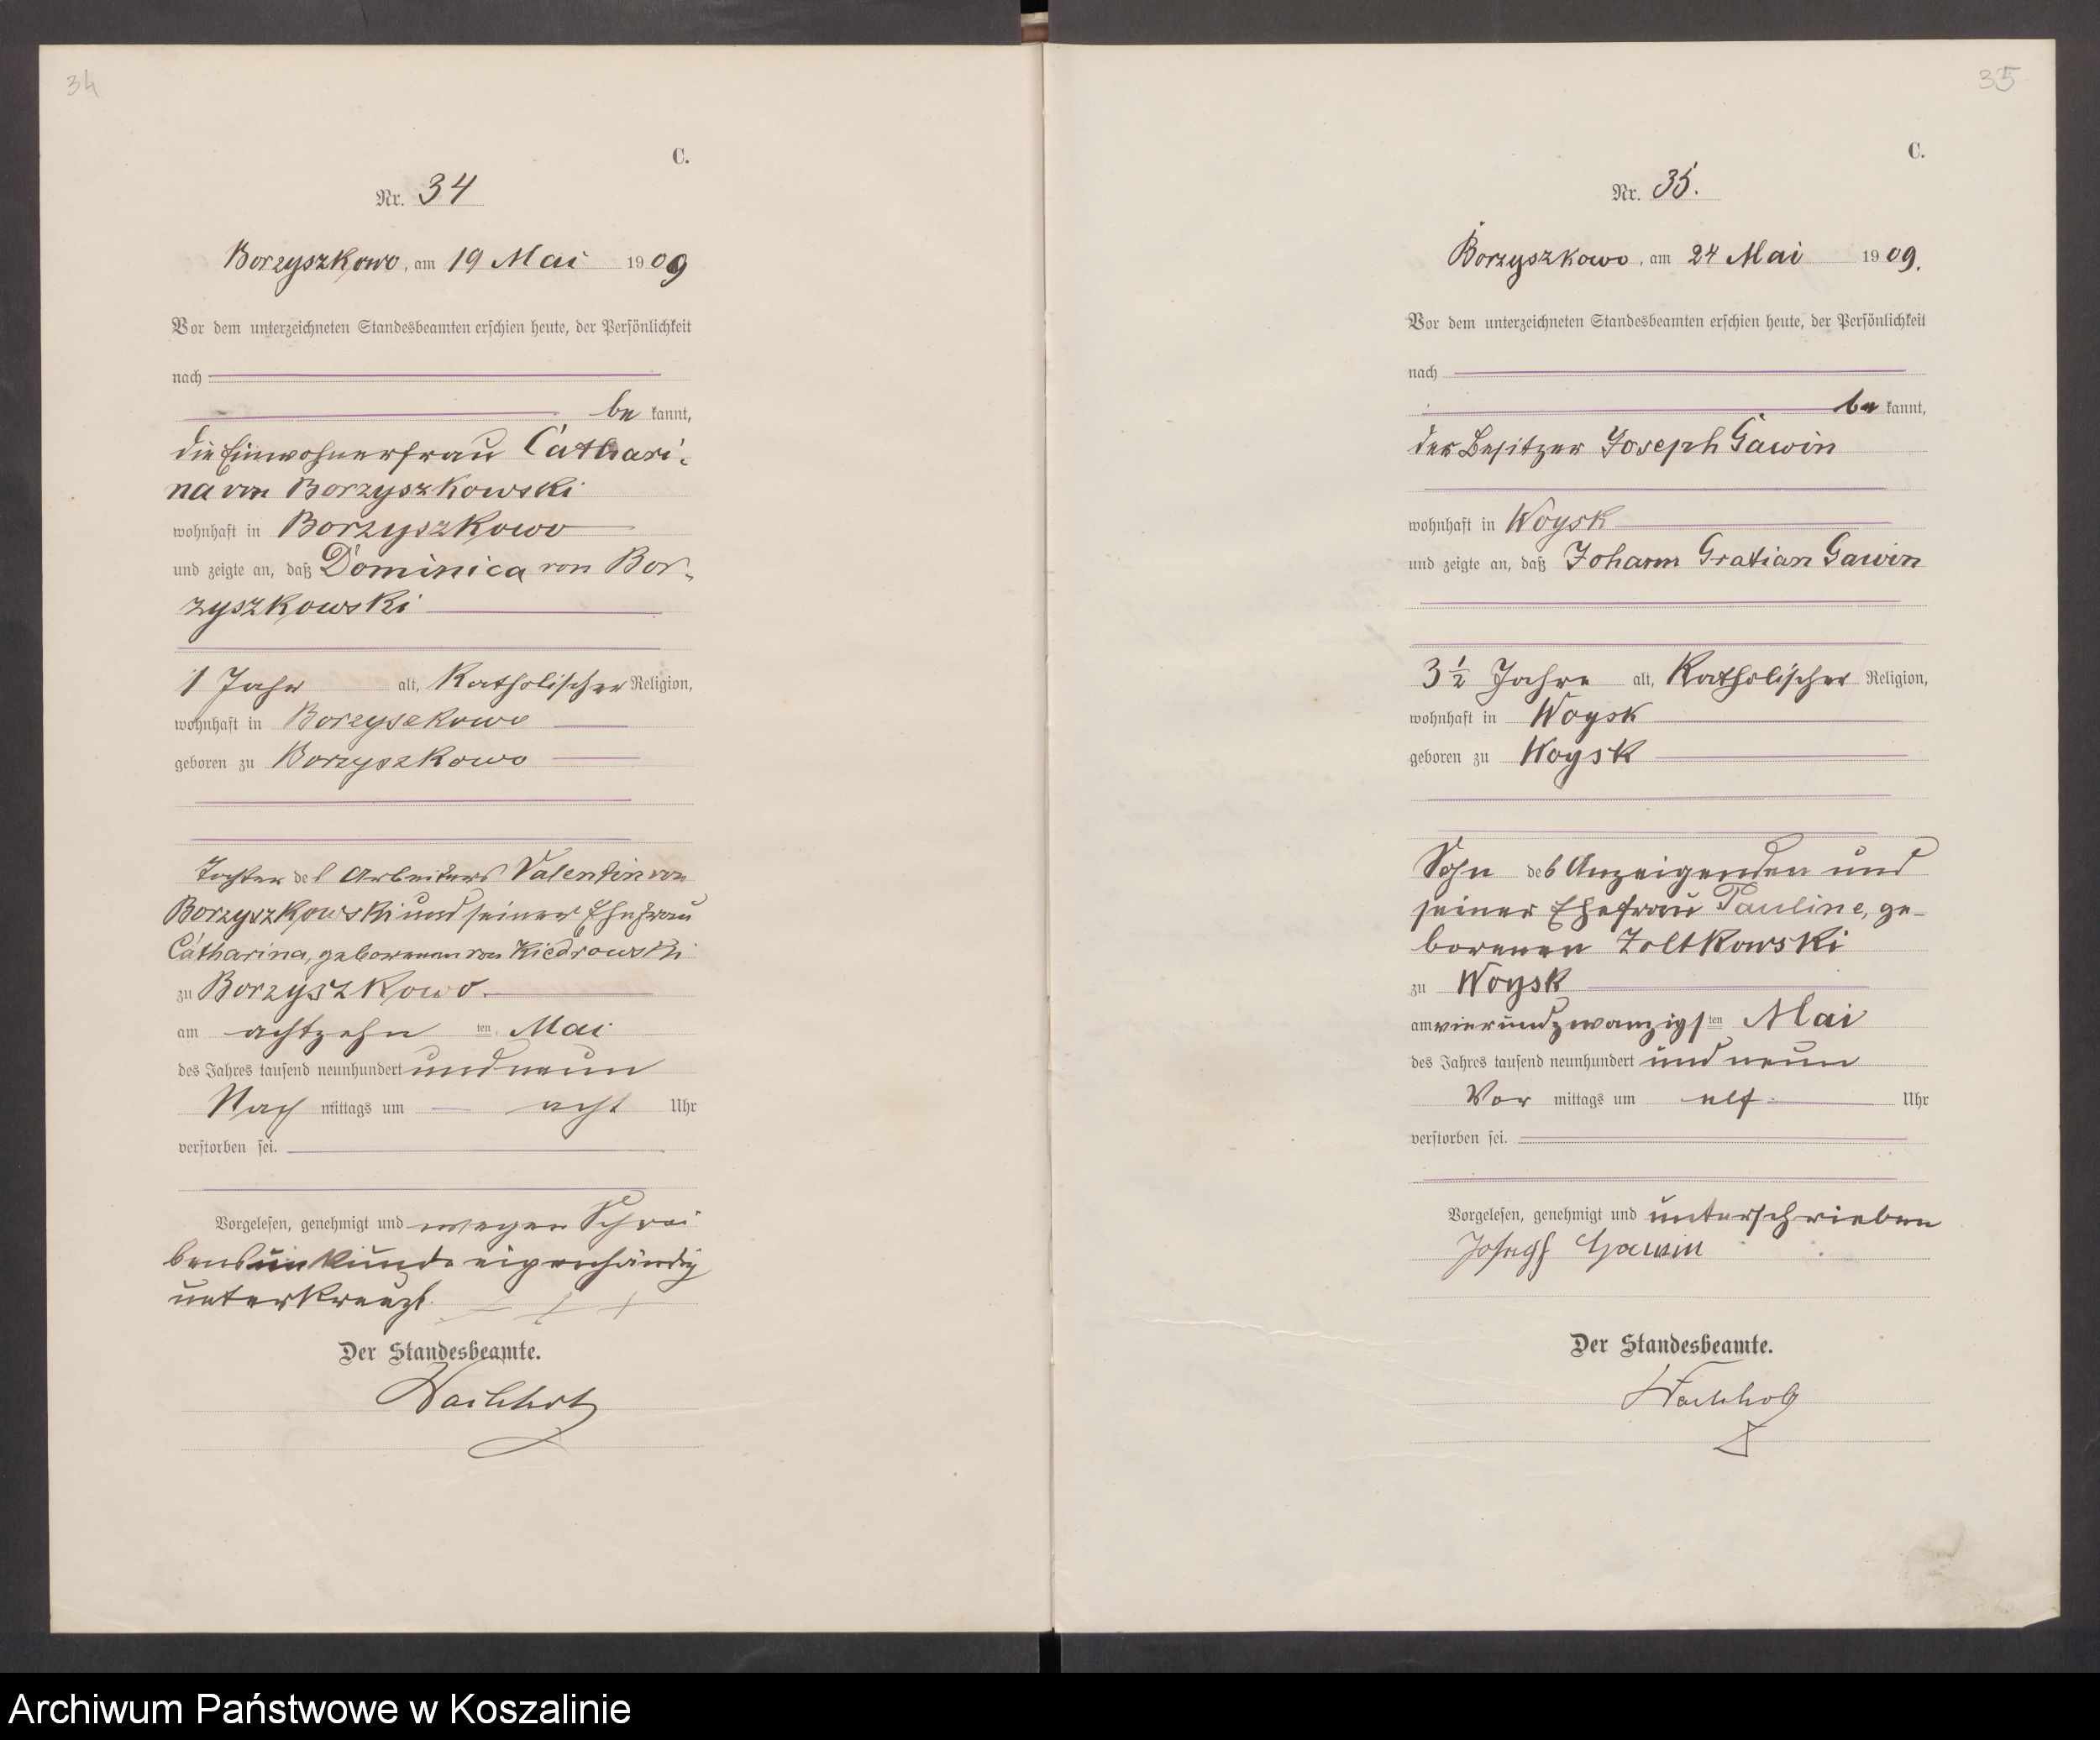 34
C.
Nr. 34
Borzyszkowo, am 19 Mai 1909
Vor dem unterzeichneten Standesbeamten erschien heute, der Persönlichkeit
nach
be kannt,
die Einwohnerfrau Cathari-
na von Borzyszkowski
wohnhaft in Borzyszkowo
und zeigte an, daß Dominica von Bor-
zyszkowski
1 Jahr alt, Katholischer Religion,
wohnhaft in Borzyszkowo
geboren zu Borzyszkowo
Tochter des Arbeiters Valentin von
Borzyszkowski und seiner Ehefrau
Catharina, geborenen von Kiedrowski
zu Borzyszkowo.
am achtzehn ten Mai
des Jahres tausend neunhundert und neun
Nach mittags um acht Uhr
verstorben sei.
Vorgelesen, genehmigt und wegen Schrei
bensunkunde eigenhändig
unterkreuzt. + + +
Der Standesbeamte.
35
C.
Nr. 35.
Borzyszkowo, am 24 Mai 1909.
Vor dem unterzeichneten Standesbeamten erschien heute, der Persönlichkeit
nach
be kannt,
der Besitzer Joseph Gawin
wohnhaft in Woysk
und zeigte an, daß Johann Gratian Gawin
3 1/2 Jahre alt, Katholischer Religion,
wohnhaft in Woysk
geboren zu Woysk
Sohn des Anzeigenden und
seiner Ehefrau Pauline, ge-
borenen Zoltkowski
zu Woysk
am vierundzwanzigsten Mai
des Jahres tausend neunhundert und neun
Vor mittags um elf Uhr
verstorben sei.
Vorgelesen, genehmigt und unterschrieben
Joseph Gawin
Der Standesbeamte.
Archiwum Państwowe w Koszalinie